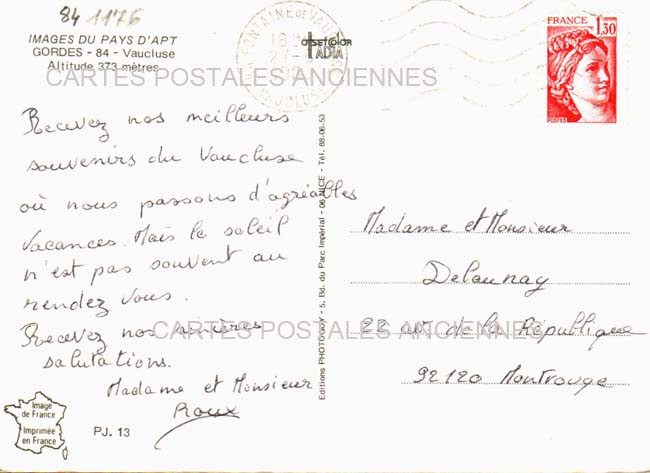 84 1176
IMAGES DU PAYS D'APT
GORDES - 84 - Vaucluse
Altitude 373 mètres
FONTAINE DE VAUCLUSE
18 H
VAUCLUSE
FRANCE
1,30
POSTES
CARTES POSTALES ANCIENNES
Recevez nos meilleurs
souvenirs du Vaucluse
où nous passons d'agréables
vacances. Mais le soleil
n'est pas souvent au
rendez vous.
Recevez nos sincères
salutations.
Madame et Monsieur
Roux
Editions PHOTOGUY - 5, Bd. du Parc Impérial - 06 NICE - Tél. 88-06-53
Madame et Monsieur
Delaunay
22 av. de la République
92120 Montrouge
CARTES POSTALES ANCIENNES
Image
de France
Imprimée
en France
PJ. 13